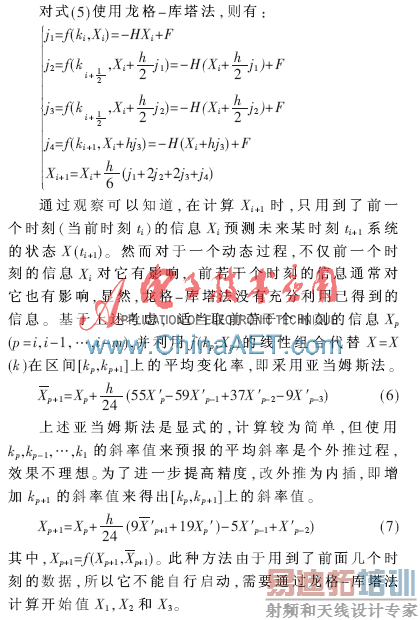 对式(5)使用龙格-库塔法,则有:
j₁=f(kᵢ,Xᵢ)=-HXᵢ+F
j₂=f(k_{i+1/2},Xᵢ+h/2 j₁)=-H(Xᵢ+h/2 j₁)+F
j₃=f(k_{i+1/2},Xᵢ+h/2 j₂)=-H(Xᵢ+h/2 j₂)+F
j₄=f(kᵢ₊₁,Xᵢ+hj₃)=-H(Xᵢ+hj₃)+F
Xᵢ₊₁=Xᵢ+h/6 (j₁+2j₂+2j₃+j₄)
通过观察可以知道,在计算 Xᵢ₊₁ 时,只用到了前一
个时刻(当前时刻 tᵢ)的信息 Xᵢ 预测未来某时刻 tᵢ₊₁ 系统
的状态 X(tᵢ₊₁)。然而对于一个动态过程,不仅前一个时
刻的信息 Xᵢ 对它有影响,前若干个时刻的信息通常对
它也有影响,显然,龙格-库塔法没有充分利用已得到的
信息。基于上述考虑,适当取前若干个时刻的信息 Xₚ
APPLICATION OF ELECTRONIC TECHNIQUE
(p=i,i-1,…,i-m),并利用 f(kₚ,Xₚ)的线性组合代替 X=X
www.ChinaAET.com
(k)在区间[kₚ,kₚ₊₁]上的平均变化率,即采用亚当姆斯法。
X̄ₚ₊₁=Xₚ+h/24 (55X′ₚ-59X′ₚ₋₁+37X′ₚ₋₂-9X′ₚ₋₃) (6)
上述亚当姆斯法是显式的,计算较为简单,但使用
kₚ,kₚ₋₁,…,k₁ 的斜率值来预报的平均斜率是个外推过程,
效果不理想。为了进一步提高精度,改外推为内插,即增
加 kₚ₊₁ 的斜率值来得出[kₚ,kₚ₊₁]上的斜率值。
Xₚ₊₁=Xₚ+h/24 (9X̄′ₚ₊₁+19Xₚ′)-5X′ₚ₋₁+X′ₚ₋₂) (7)
其中,Xₚ₊₁=f(Xₚ₊₁,X̄ₚ₊₁)。此种方法由于用到了前面几个时
刻的数据,所以它不能自行启动,需要通过龙格-库塔法
计算开始值 X₁,X₂ 和 X₃。
易迪拓培训
射频和天线设计专家